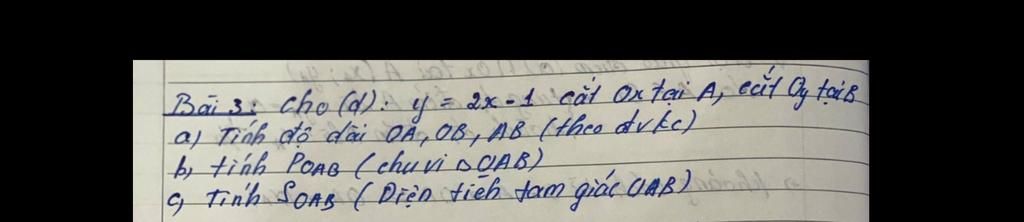 Bài 3: Cho (d): y = 2x - 1 cắt Ox tại A, cắt Oy tại B
a) Tính độ dài OA, OB, AB (theo đvđc)
b, tính POAB (chu vi △ OAB)
c, Tính SOAB (Diện tích tam giác OAB)